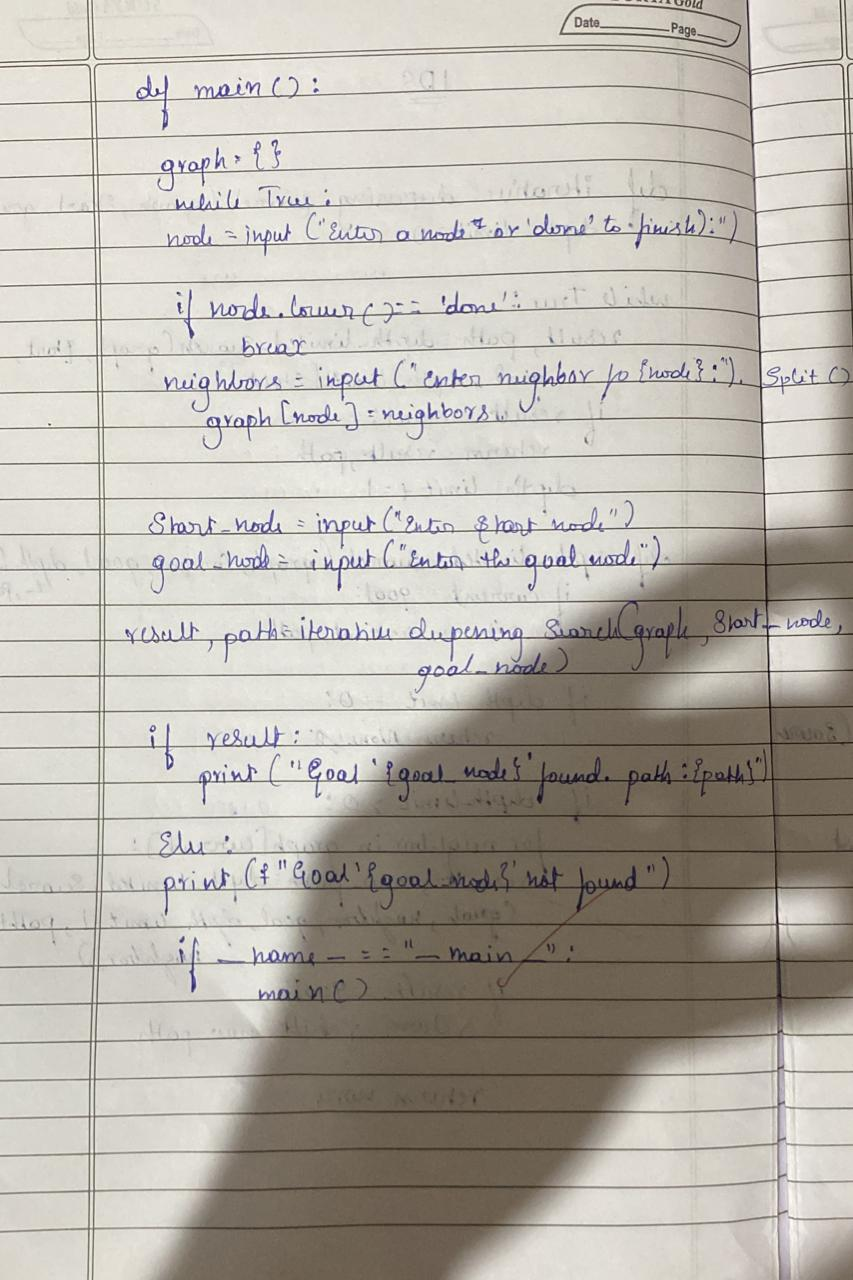 Gold
Date Page
def main():
graph = {}
while True:
node = input ("Enter a node or 'done' to finish):")
if node.lower() == 'done':
break
neighbors = input ("Enter neighbor fo {node}:"). Split ()
graph [node] = neighbors.
Start_node = input ("Enter Start node")
goal_node = input ("Enter the goal node").
result, path = iterative deepening Search(graph, Start_node,
goal_node)
if result:
print ("Goal '{goal_node}' found. path : {path}")
Else:
print (f "Goal '{goal_node}' not found")
if _ name _ == "_ main _":
main()